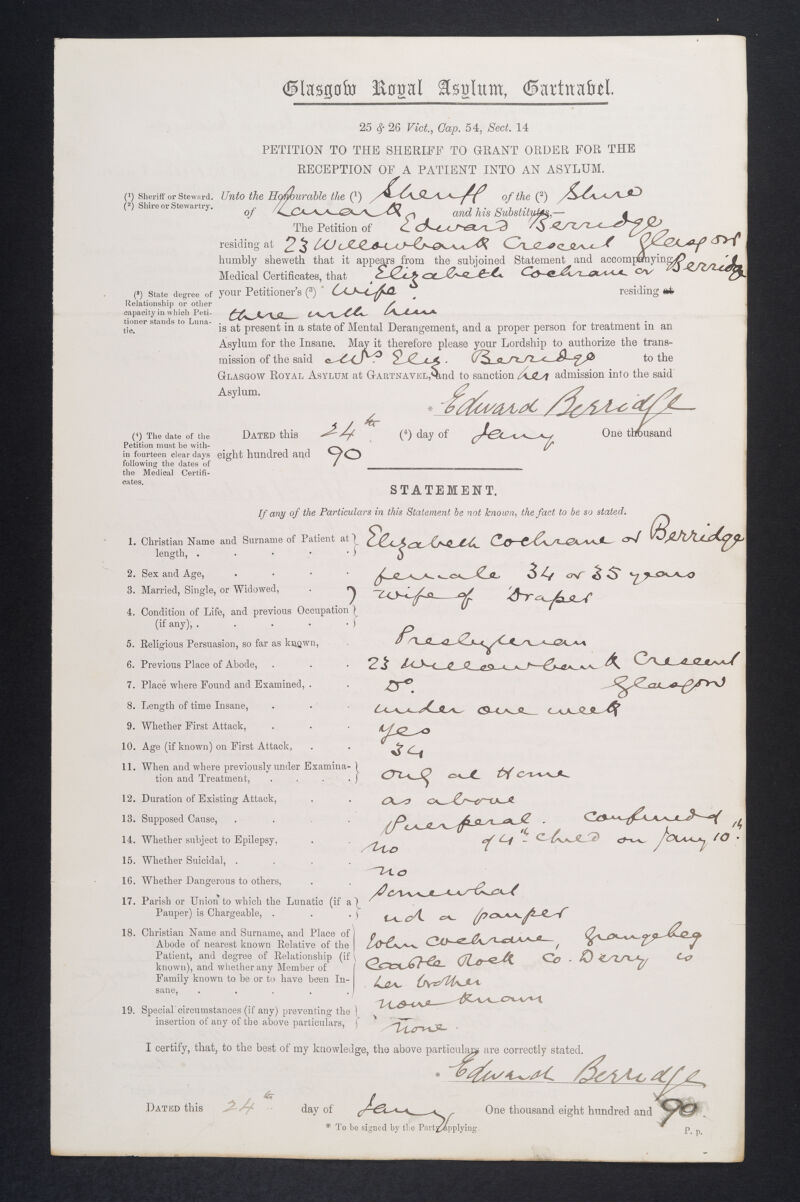 Glasgow Royal Asylum, Gartnabel.
25 & 26 Vict., Cap. 54, Sect. 14
PETITION TO THE SHERIFF TO GRANT ORDER FOR THE
RECEPTION OF A PATIENT INTO AN ASYLUM.
(¹) Sheriff or Steward.
(²) Shire or Stewartry.
Unto the Honourable the (¹) Sheriff of the (²) Shire
of Lanark and his Substitutes,—
The Petition of Edward Berridge
residing at 23 Willowbank Crescent Glasgow
humbly sheweth that it appears from the subjoined Statement and accompanying
Medical Certificates, that Elizabeth Cochrane or Berridge
(³) State degree of
Relationship or other
capacity in which Peti-
tioner stands to Luna-
tic.
your Petitioner's (³) Wife residing at
there with him
is at present in a state of Mental Derangement, and a proper person for treatment in an
Asylum for the Insane. May it therefore please your Lordship to authorize the trans-
mission of the said Mrs Eliz. Berridge to the
GLASGOW ROYAL ASYLUM AT GARTNAVEL, and to sanction her admission into the said
Asylum.
* Edward Berridge
(⁴) The date of the
Petition must be with-
in fourteen clear days
following the dates of
the Medical Certifi-
cates.
DATED this 24th (⁴) day of Jany One thousand
eight hundred and 90
STATEMENT.
If any of the Particulars in this Statement be not known, the fact to be so stated.
1. Christian Name and Surname of Patient at length, . . . . . Elizabeth Cochrane or Berridge
2. Sex and Age, . . . . female 34 or 35 years
3. Married, Single, or Widowed, . Wife of Draper
4. Condition of Life, and previous Occupation (if any), . . . . .
5. Religious Persuasion, so far as known, Presbyterian
6. Previous Place of Abode, . . . 23 Willowbank Crescent
7. Place where Found and Examined, . . Do. Glasgow
8. Length of time Insane, . . . under one week
9. Whether First Attack, . . . yes
10. Age (if known) on First Attack, . . 34
11. When and where previously under Examina-
tion and Treatment, . . . . only at Home
12. Duration of Existing Attack, . . as above
13. Supposed Cause, . . . . Puerperal. Confined
of 4th child on Jany 10th.
14. Whether subject to Epilepsy, . . no
15. Whether Suicidal, . . . . no
16. Whether Dangerous to others, . . Somewhat
17. Parish or Union to which the Lunatic (if a
Pauper) is Chargeable, . . . not a pauper
18. Christian Name and Surname, and Place of
Abode of nearest known Relative of the
Patient, and degree of Relationship (if
known), and whether any Member of
Family known to be or to have been In-
sane, . . . . . .
John Cochrane, Grangebeg
Castle Rock Co. Derry is
her brother
none known
19. Special circumstances (if any) preventing the
insertion of any of the above particulars, none.
I certify, that, to the best of my knowledge, the above particulars are correctly stated.
* Edward Berridge
DATED this 24th day of Jany One thousand eight hundred and 90.
* To be signed by the Party applying.
P. p.